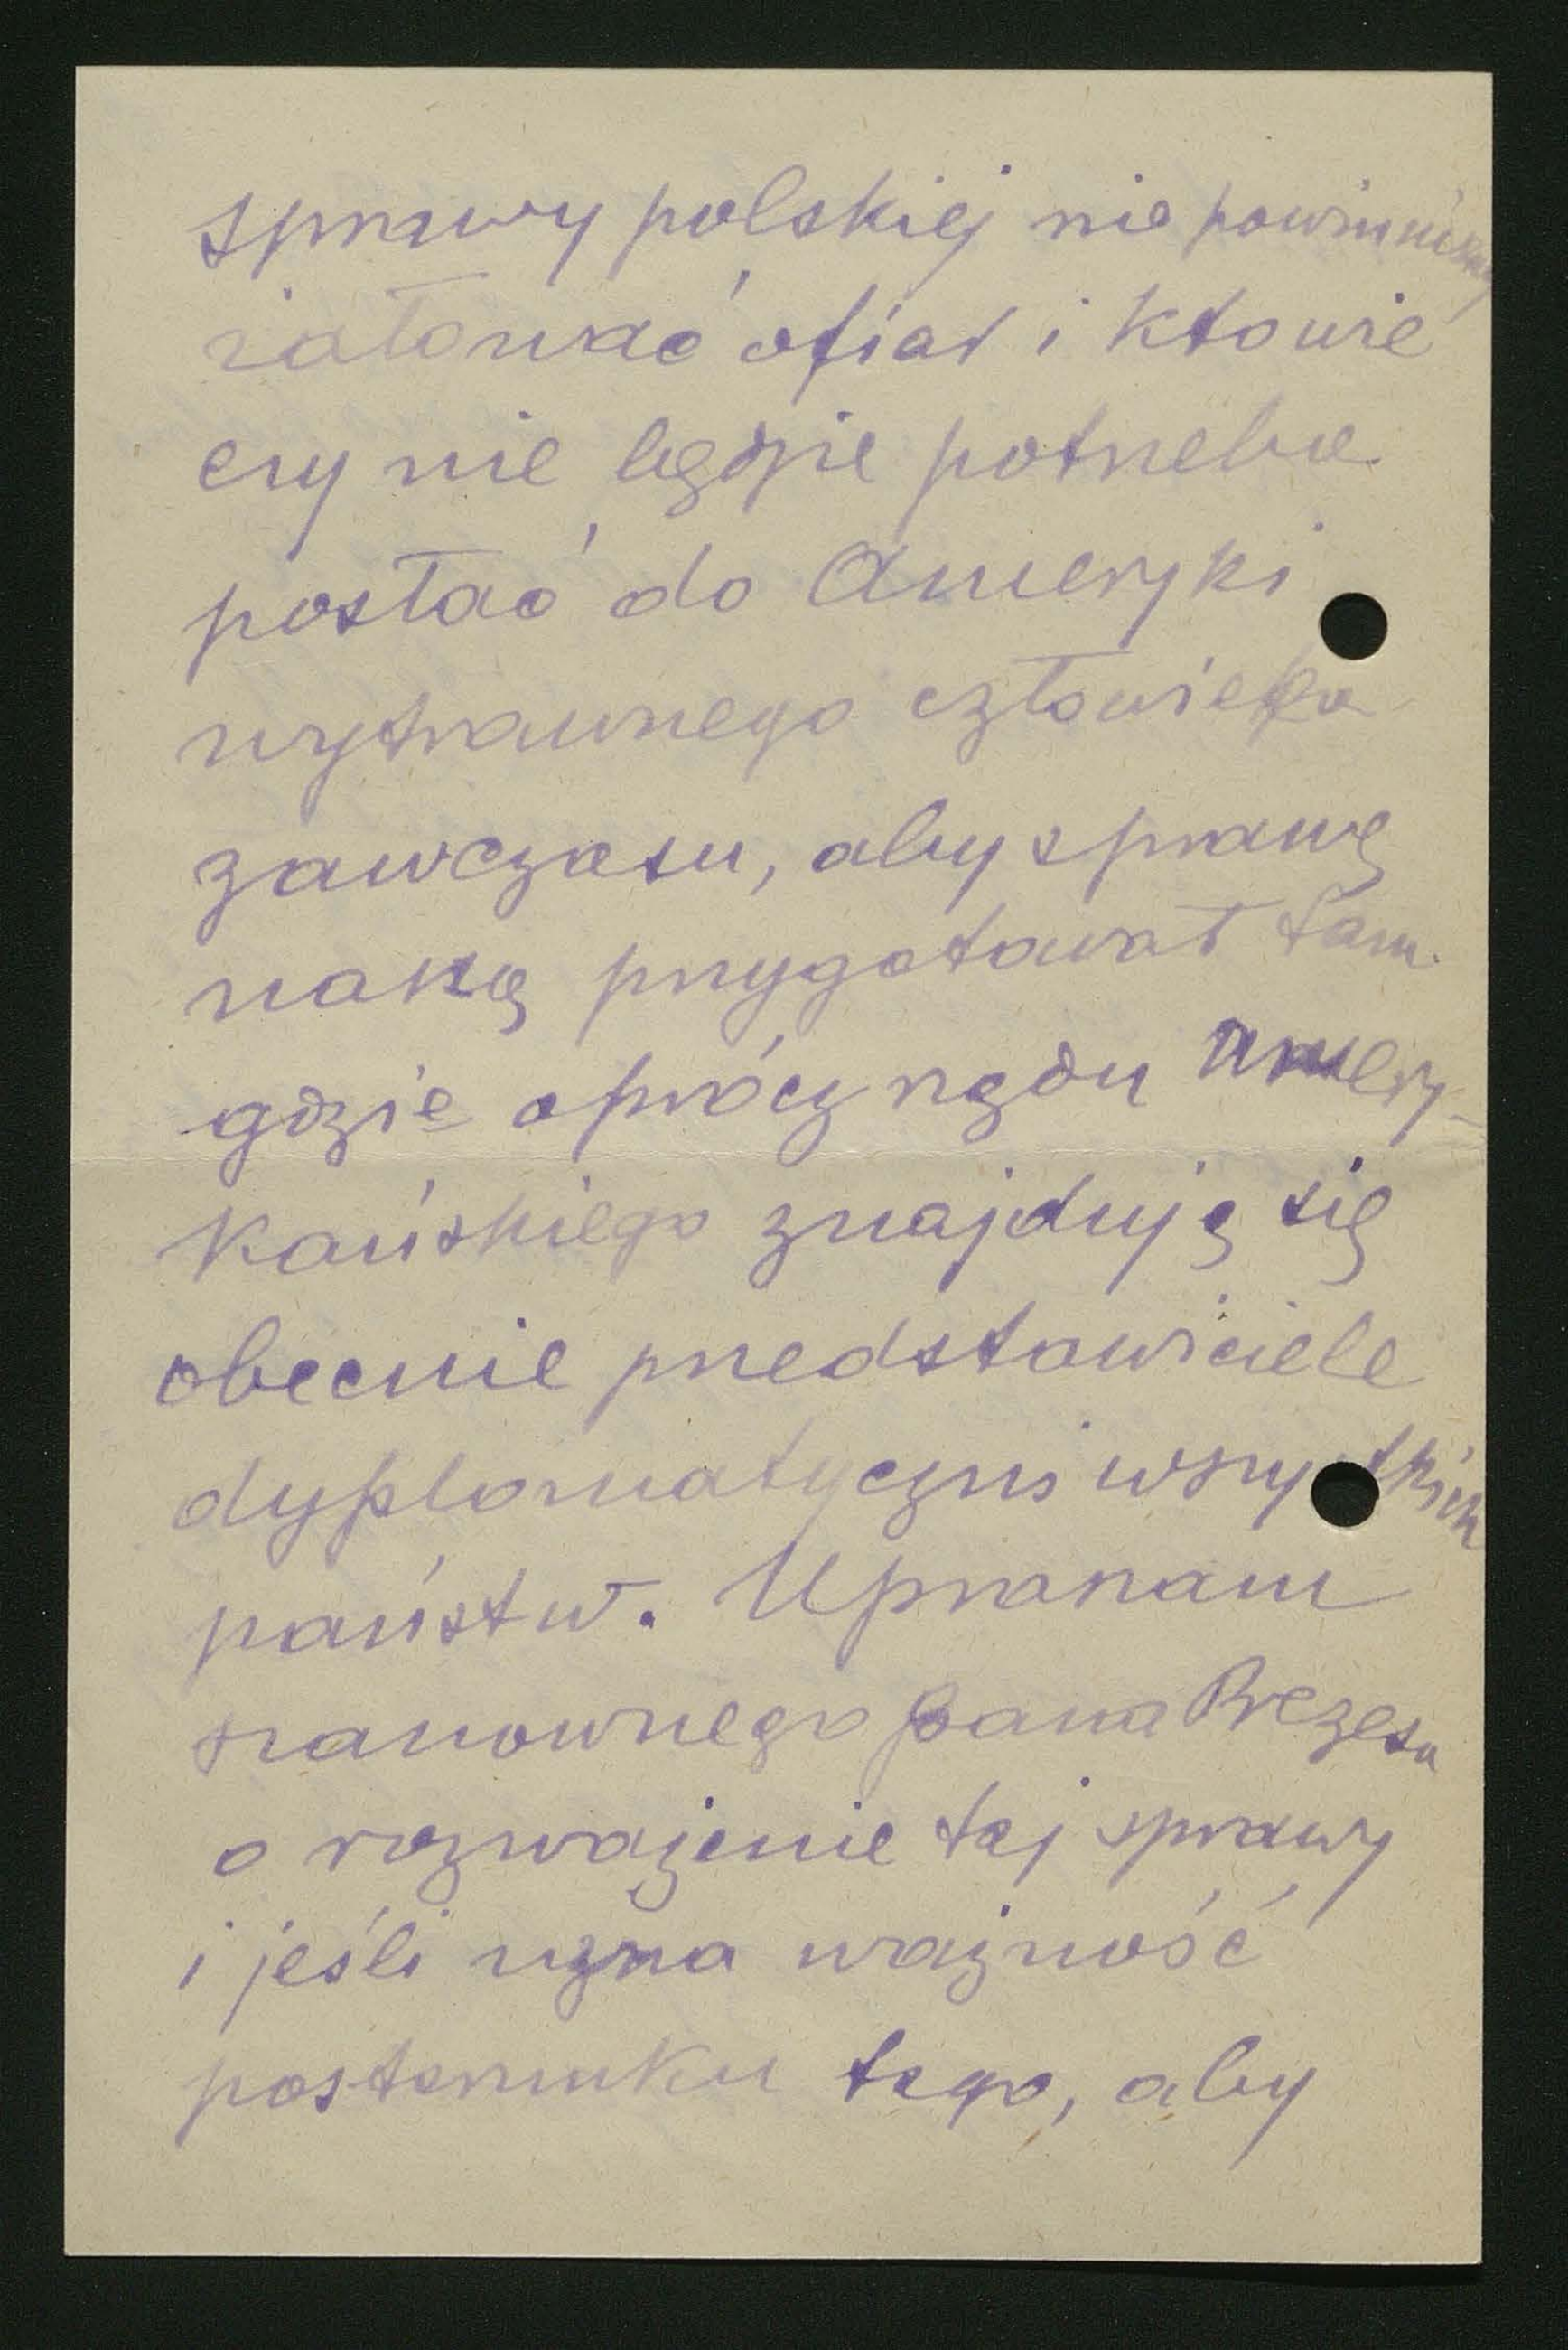 sprawy polskiej nie powinniśmy
żałować ofiar i kto wie
czy nie będzie potrzeba
posłać do Ameryki
wytrawnego człowieka
zawczasu, aby sprawę
naszą przygotował tam
gdzie oprócz rządu amery-
kańskiego znajdują się
obecnie przedstawiciele
dyplomatyczni wszystkich
państw. Upraszam
szanownego Pana Prezesa
o rozważenie tej sprawy
i jeśli uzna ważność
posterunku tego, aby